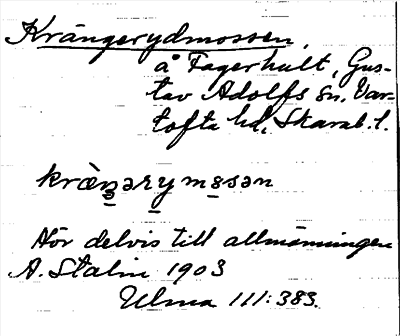 Krängerydmossen,
å Fagerhult, Gus-
tav Adolfs sn. Var-
tofta hd, Skarab. l.
kræ̀ŋərymosən
Hör delvis till allmänningen
A. Stalin 1903
Ulma 111:383.